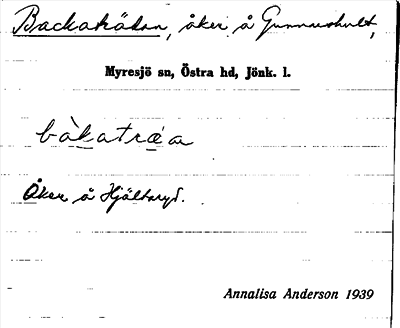 Backaträdan, åker å Gunnarshult,
Myresjö sn, Östra hd, Jönk. l.
bàkatræa
Åker å Hjältaryd.
Annalisa Anderson 1939